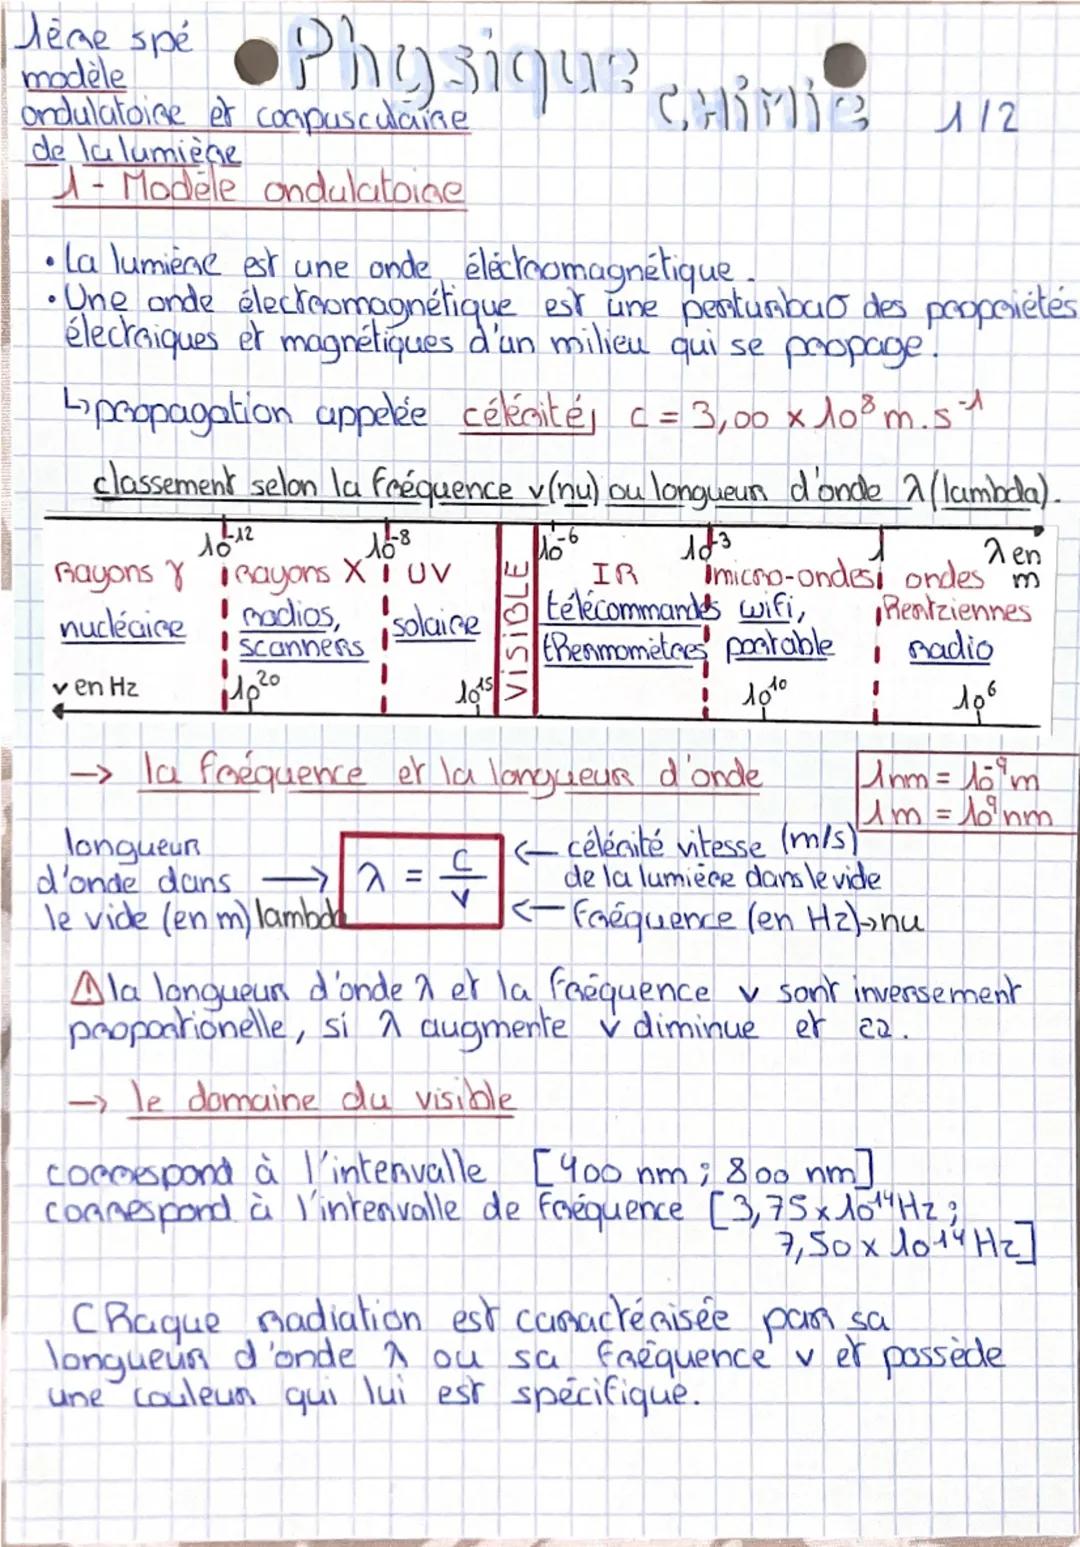 1ère spé
modèle
ondulatoire et corpusculaire
de la lumière
Physique
CHIMIE
1/2
1 - Modèle ondulatoire
• La lumière est une onde éléctromagnétique.
• Une onde électromagnétique est une perturbat° des propriétés
électriques et magnétiques d'un milieu qui se propage.
↳ propagation appelée célérité, c = 3,00 × 10⁸ m.s⁻¹
classement selon la fréquence ν (nu) ou longueur d'onde λ (lambda).
10⁻¹² 10⁻⁸ 10⁻⁶ 10⁻³ 1 λ en m
Rayons γ Rayons X UV VISIBLE IR micro-ondes ondes Hertziennes
nucléaire radios, scanners solaire télécommandes thermomètres wifi, portable radio
ν en Hz 10²⁰ 10¹⁵ 10¹⁰ 10⁶
→ la fréquence et la longueur d'onde
1nm = 10⁻⁹ m
1m = 10⁹ nm
longueur
d'onde dans
le vide (en m) lambda
→ λ = c/ν
← célérité vitesse (m/s)
de la lumière dans le vide
← fréquence (en Hz) → nu
⚠ la longueur d'onde λ et la fréquence ν sont inversement
proportionelle, si λ augmente ν diminue et
→ le domaine du visible
correspond à l'intervalle [400 nm ; 800 nm]
correspond à l'intervalle de fréquence [3,75 × 10¹⁴ Hz ;
7,50 × 10¹⁴ Hz]
Chaque radiation est caractérisée par sa
longueur d'onde λ ou sa fréquence ν et possède
une couleur qui lui est spécifique.